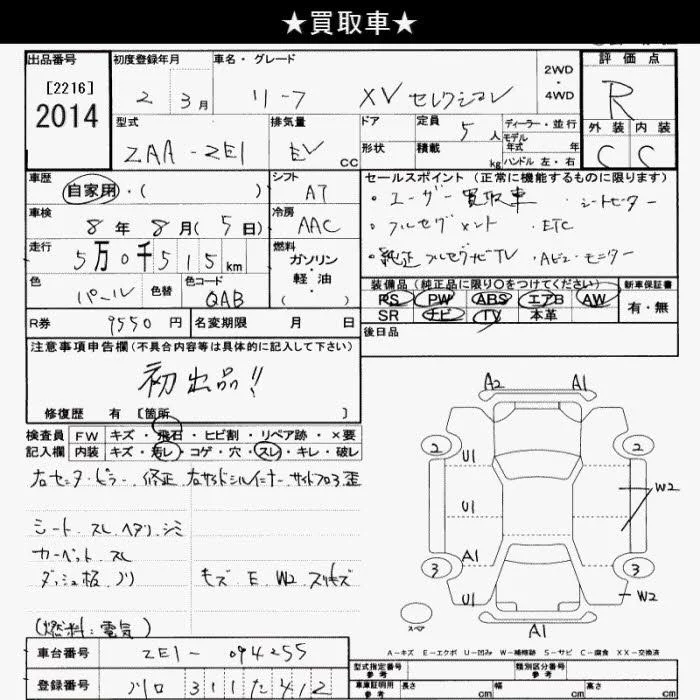 ★買取車★
出品番号 初度登録年月 車名・グレード 2WD・4WD 評価点
[2216]
2014 2 3月 リーフ XVセレクション R
型式 排気量 ドア 定員 5人 ディーラー・並行 外装 内装
モデル年式 年
ZAA-ZE1 EV cc 形状 積載 kg ハンドル 左・右 C C
車歴 自家用・( ) シフト AT セールスポイント（正常に機能するものに限ります）
・ユーザー買取車 ・シートヒーター
車検 8年8月(5日) 冷房 AAC ・フルセグメント ・ETC
走行 5万0千515km 燃料 ガソリン・軽油( ) ・純正フルセグナビTV ・Aビューモニター
色 パール 色替 色コード QAB 装備品（純正品に限り○をつけてください） 新車保証書
PS PW ABS エアB AW 有・無
SR ナビ TV 本革
R券 9550円 名変期限 月 日 後日品
注意事項申告欄(不具合内容等は具体的に記入して下さい)
初出品!!
修復歴 有 〔箇所 〕
検査員 FW キズ・飛石・ヒビ割・リペア跡・×要
記入欄 内装 キズ・汚レ・コゲ・穴・スレ・キレ・破レ
右センターピラー修正 右サイドシルインナーサイドフロア歪
シート スレ ヘタリ シミ
カーペット スレ
ダッシュ板 ノリ キズ E W2 スリキズ
(燃料:電気)
A2 A1
2 2
U1
U1 W2
A1
3 3
U1 W2
スペア A1
A-キズ E-エクボ U-凹み W-補修跡 S-サビ C-腐食 XX-交換済
車台番号 ZE1-094255
登録番号 川口 311 た 412
型式指定番号 参考 類別区分番号 参考
車庫証明用 参考 長さ cm 幅 cm 高さ cm